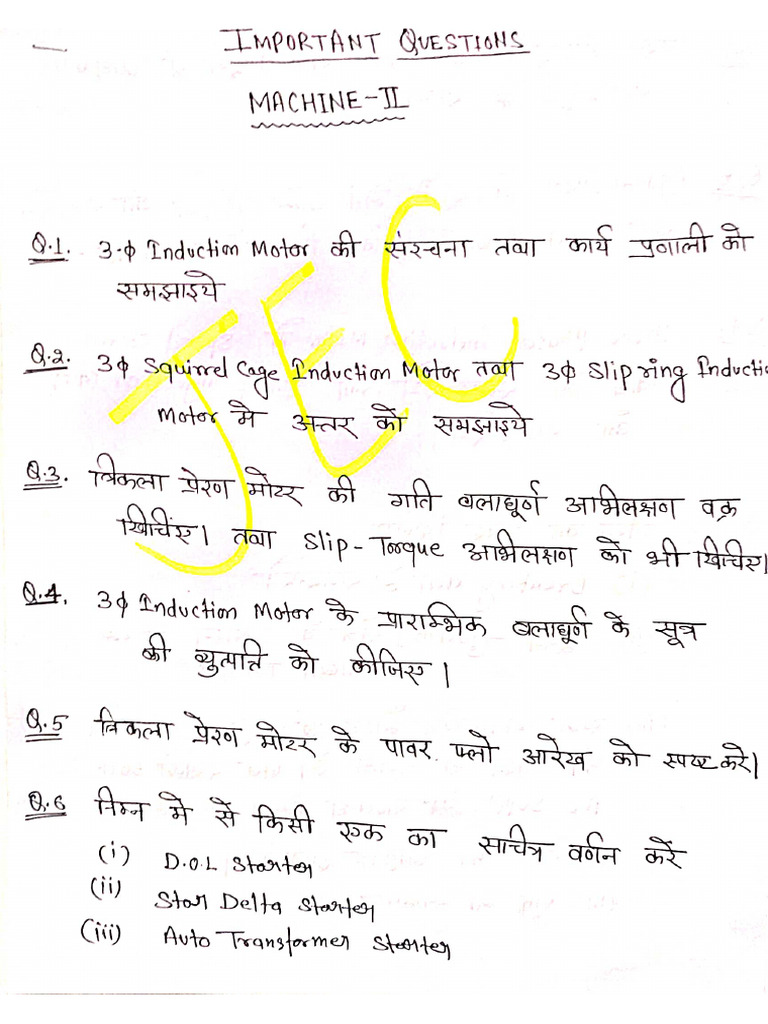 IMPORTANT QUESTIONS
MACHINE-II
JEC
Q.1. 3-ф Induction Motor की संरचना तथा कार्य प्रणाली को
समझाइये
Q.2. 3ф Squirrel Cage Induction Motor तथा 3ф Slip ring Inducti
Motor मे अन्तर को समझाइये
Q.3. त्रिकला प्रेरण मोटर की गति बलाघूर्ण अभिलक्षण वक्र
खिचिंए। तथा Slip-Torque अभिलक्षण को भी खिचिए।
Q.4. 3ф Induction Motor के प्रारम्भिक बलाघूर्ण के सूत्र
की व्युत्पत्ति को कीजिए।
Q.5 त्रिकला प्रेरण मोटर के पावर फ्लो आरेख को स्पष्ट करे।
Q.6 निम्न मे से किसी एक का सचित्र वर्णन करें
(i) D.O.L Starter
(ii) Star Delta Starter
(iii) Auto Transformer Starter